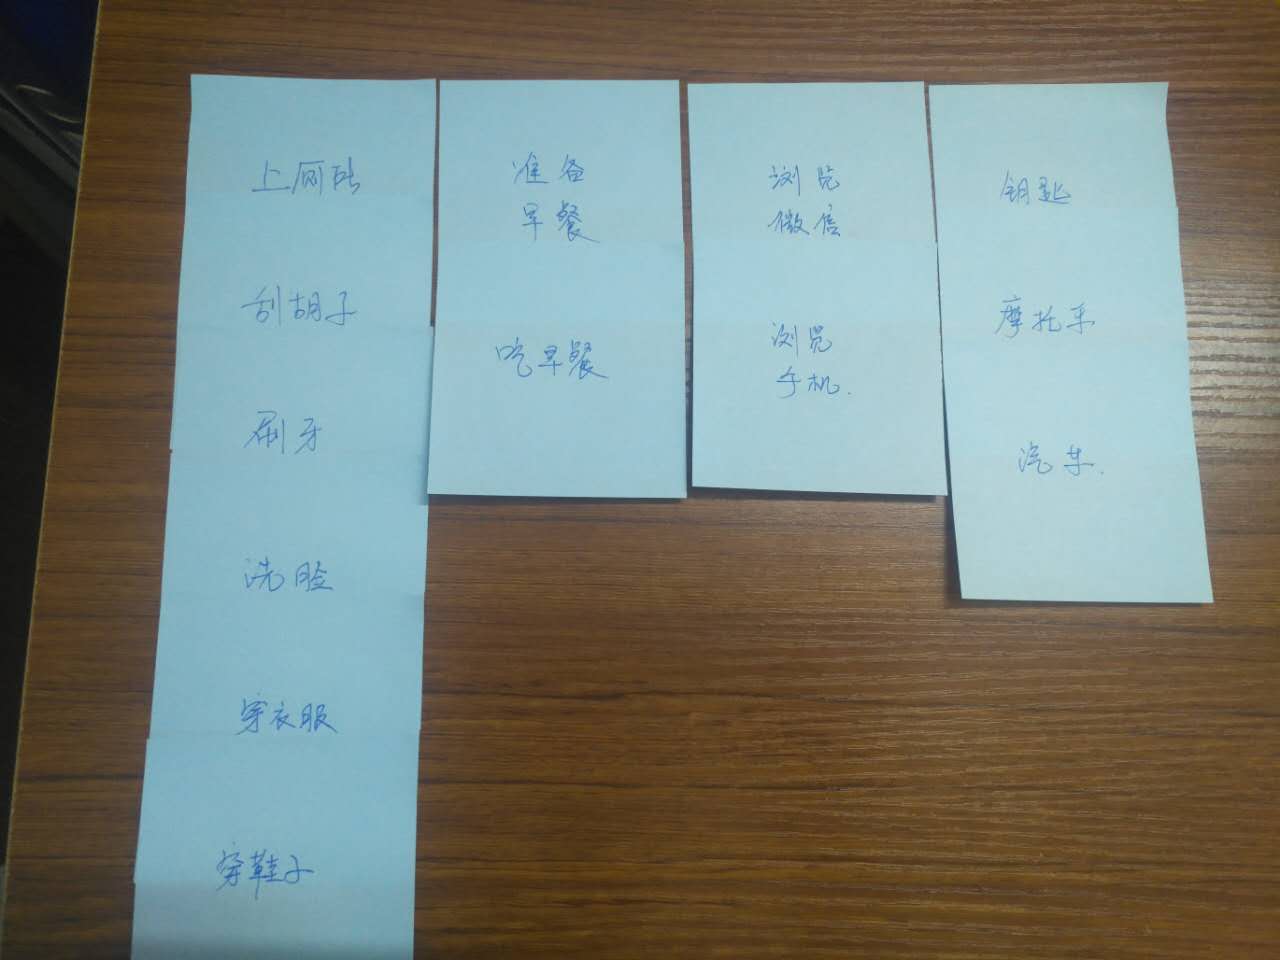 上厕所
刮胡子
刷牙
洗脸
穿衣服
穿鞋子
准备
早餐
吃早餐
浏览
微信
浏览
手机.
钥匙
摩托车
汽车.